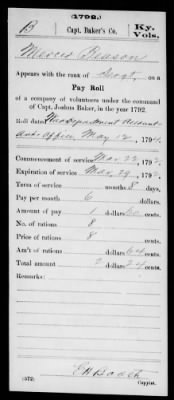 (1792.)
B
Capt. Baker's Co.
Ky. Vols.
Mercer Beason
Appears with the rank of Sergt on a
Pay Roll
of a company of volunteers under the command
of Capt. Joshua Baker, in the year 1792.
Roll dated War Department Account
ants Office, May 12, 1794.
Commencement of service Mar. 22, 1792.
Expiration of service Mar. 29, 1792.
Term of service months 8 days.
Pay per month 6 dollars
Amount of pay 1 dollars 60 cents.
No. of rations 8
Price of rations 8 cents.
Am't of rations dollars 64 cents.
Total amount 2 dollars 24 cents.
Remarks:
(572)
Copyist.